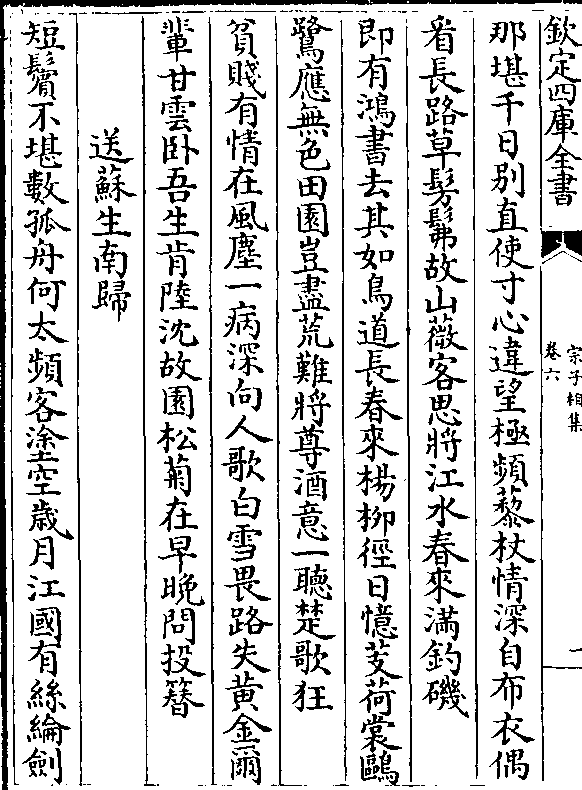 欽定四庫全書
宗子相集
卷六
一
那堪千日别直使寸心違望極頻藜杖情深自布衣偶
看長路草髣髴故山薇客思將江水春來滿釣磯
即有鴻書去其如鳥道長春來楊栁徑日憶芰荷裳鷗
鷺應無色田園豈盡荒難將尊酒意一聽楚歌狂
貧賤有情在風塵一病深向人歌白雪畏路失黄金爾
輩甘雲卧吾生肯陸沈故園松菊在早晚問投簪
送蘇生南歸
短鬢不堪數孤舟何太頻客塗空歲月江國有絲綸劍